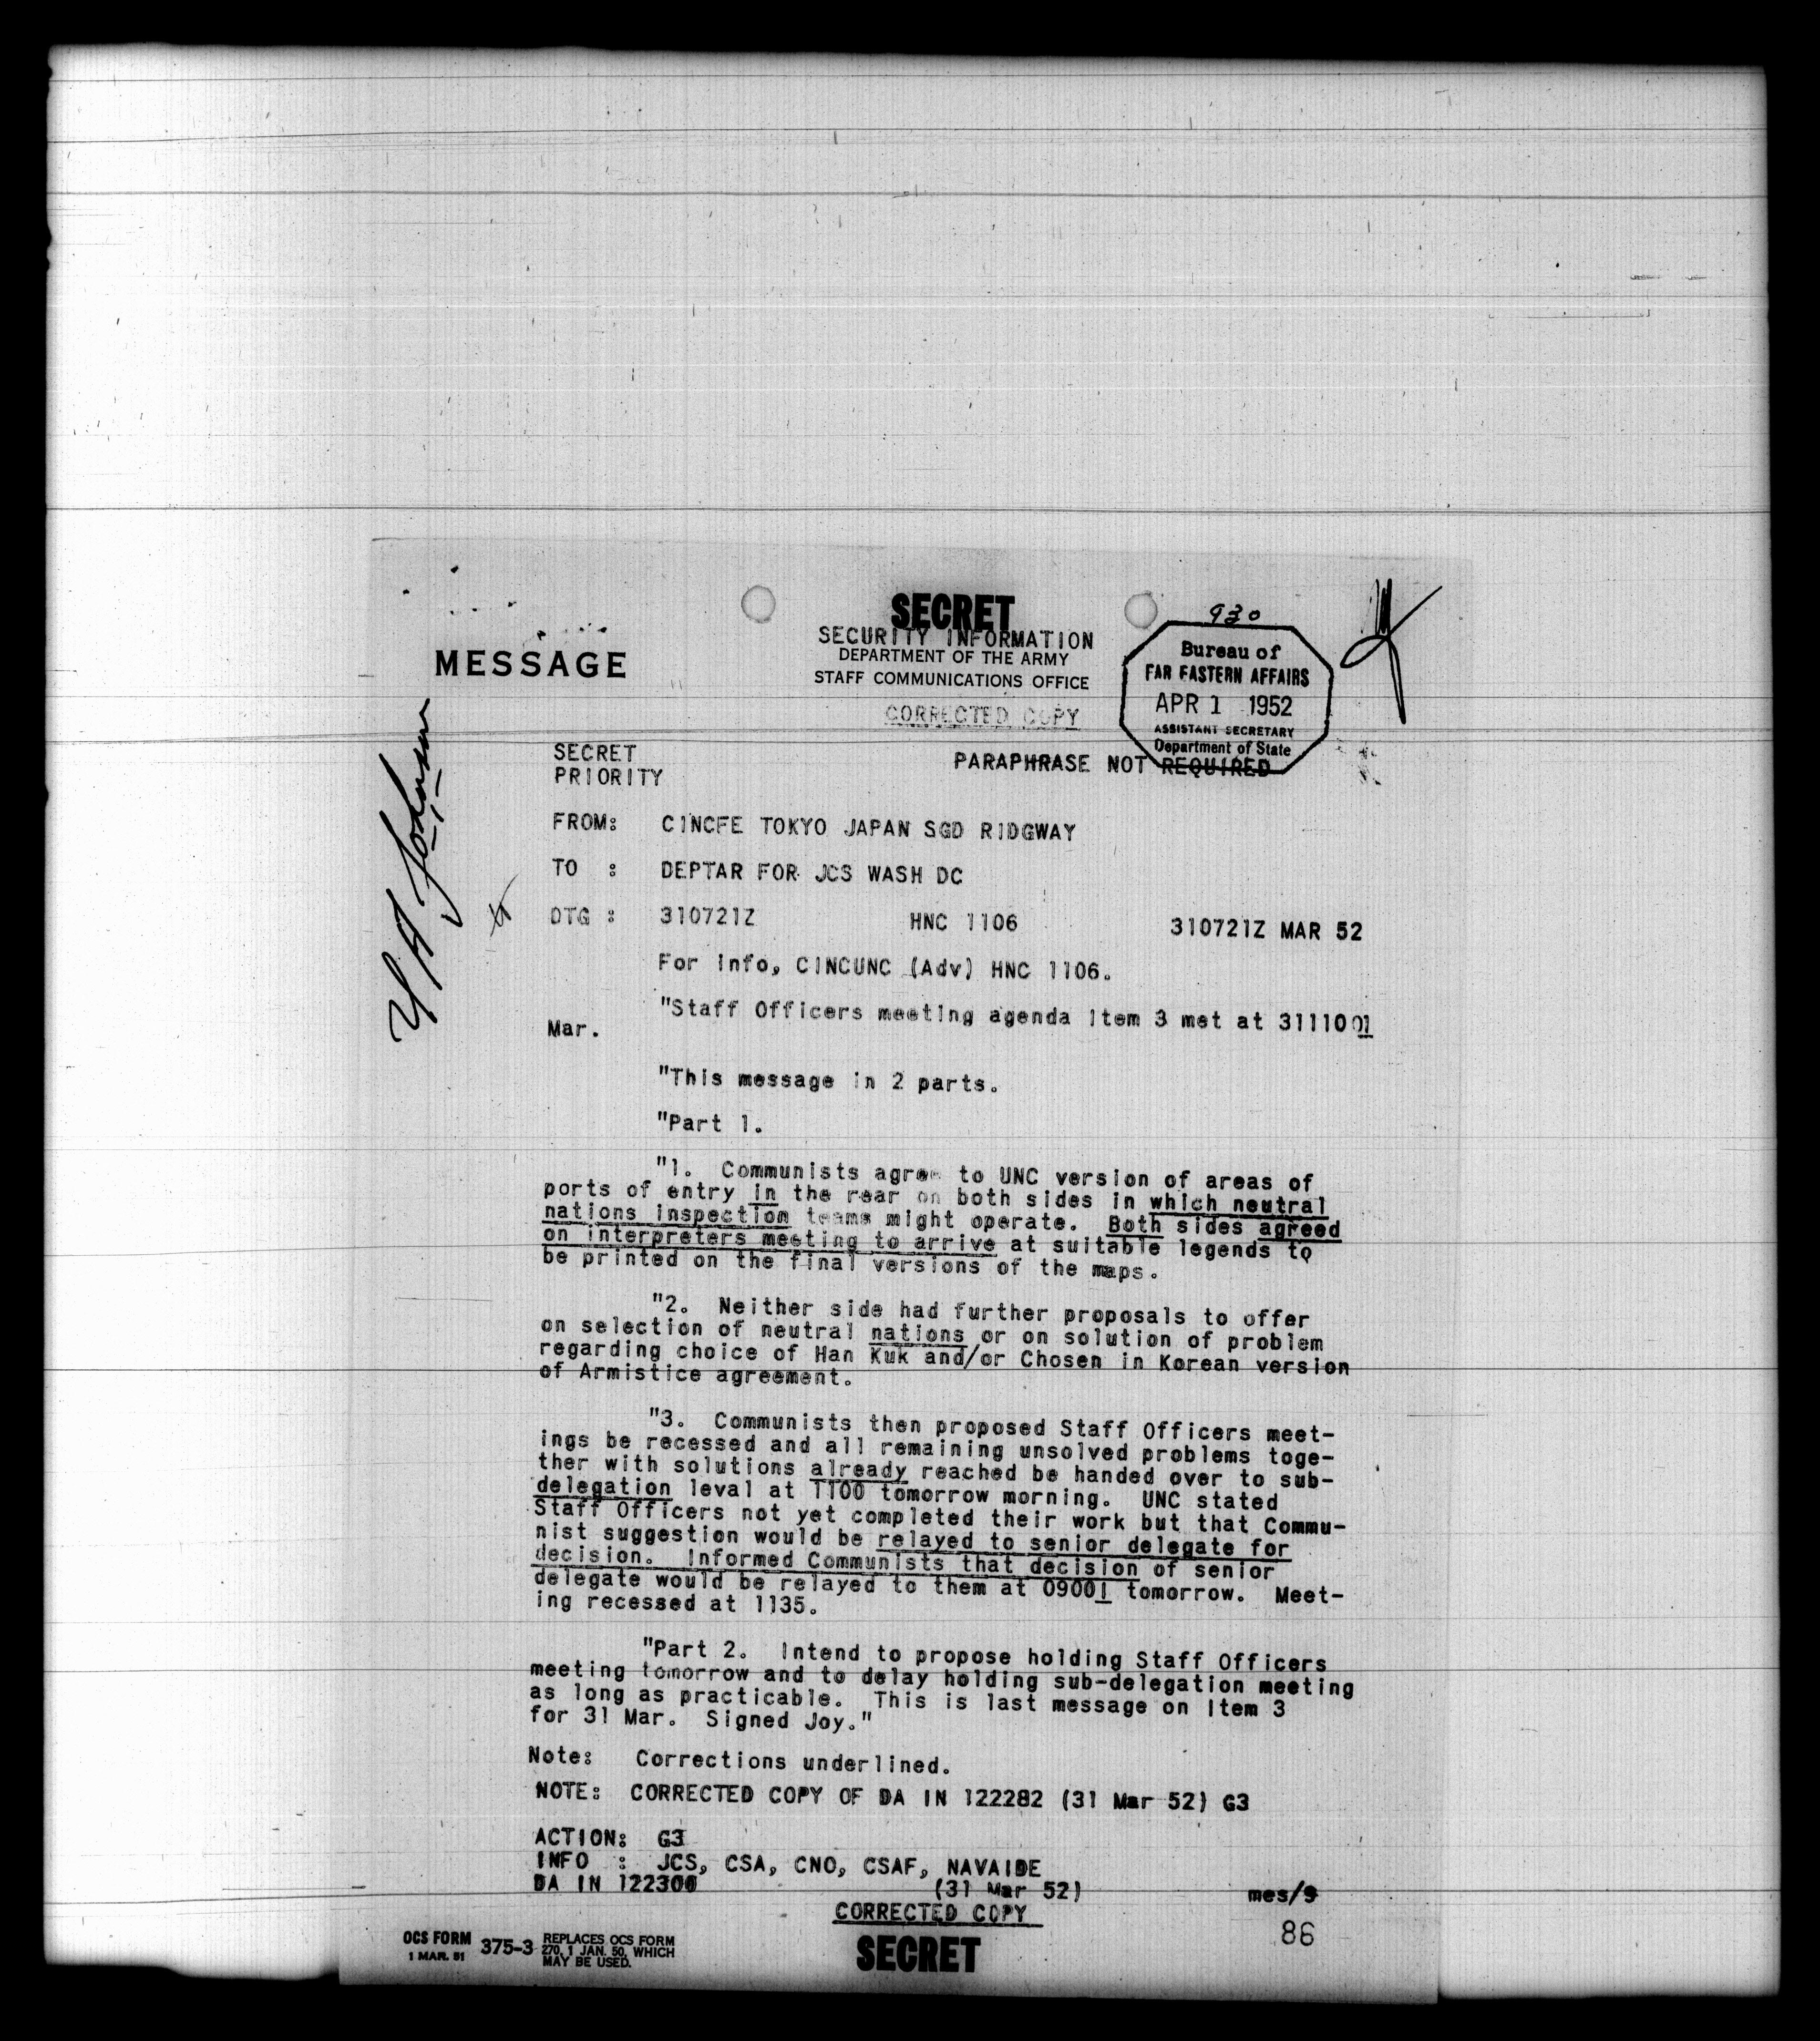 930
SECRET
SECURITY INFORMATION
DEPARTMENT OF THE ARMY
STAFF COMMUNICATIONS OFFICE
MESSAGE
Bureau of
FAR EASTERN AFFAIRS
APR 1 1952
ASSISTANT SECRETARY
Department of State
CORRECTED COPY
SECRET
PRIORITY
PARAPHRASE NOT REQUIRED
U A Johnson
FROM: CINCFE TOKYO JAPAN SGD RIDGWAY
TO : DEPTAR FOR JCS WASH DC
DTG : 310721Z HNC 1106 310721Z MAR 52
For info, CINCUNC (Adv) HNC 1106.
"Staff Officers meeting agenda item 3 met at 311100I
Mar.
"This message in 2 parts.
"Part 1.
"1. Communists agree to UNC version of areas of
ports of entry in the rear on both sides in which neutral
nations inspection teams might operate. Both sides agreed
on interpreters meeting to arrive at suitable legends to
be printed on the final versions of the maps.
"2. Neither side had further proposals to offer
on selection of neutral nations or on solution of problem
regarding choice of Han Kuk and/or Chosen in Korean version
of Armistice agreement.
"3. Communists then proposed Staff Officers meet-
ings be recessed and all remaining unsolved problems toge-
ther with solutions already reached be handed over to sub-
delegation leval at 1100 tomorrow morning. UNC stated
Staff Officers not yet completed their work but that Commu-
nist suggestion would be relayed to senior delegate for
decision. Informed Communists that decision of senior
delegate would be relayed to them at 0900I tomorrow. Meet-
ing recessed at 1135.
"Part 2. Intend to propose holding Staff Officers
meeting tomorrow and to delay holding sub-delegation meeting
as long as practicable. This is last message on Item 3
for 31 Mar. Signed Joy."
Note: Corrections underlined.
NOTE: CORRECTED COPY OF DA IN 122282 (31 Mar 52) G3
ACTION: G3
INFO : JCS, CSA, CNO, CSAF, NAVAIDE
DA IN 122300 (31 Mar 52) mes/9
CORRECTED COPY
86
OCS FORM
1 MAR. 51
375-3
REPLACES OCS FORM
270, 1 JAN. 50, WHICH
MAY BE USED.
SECRET